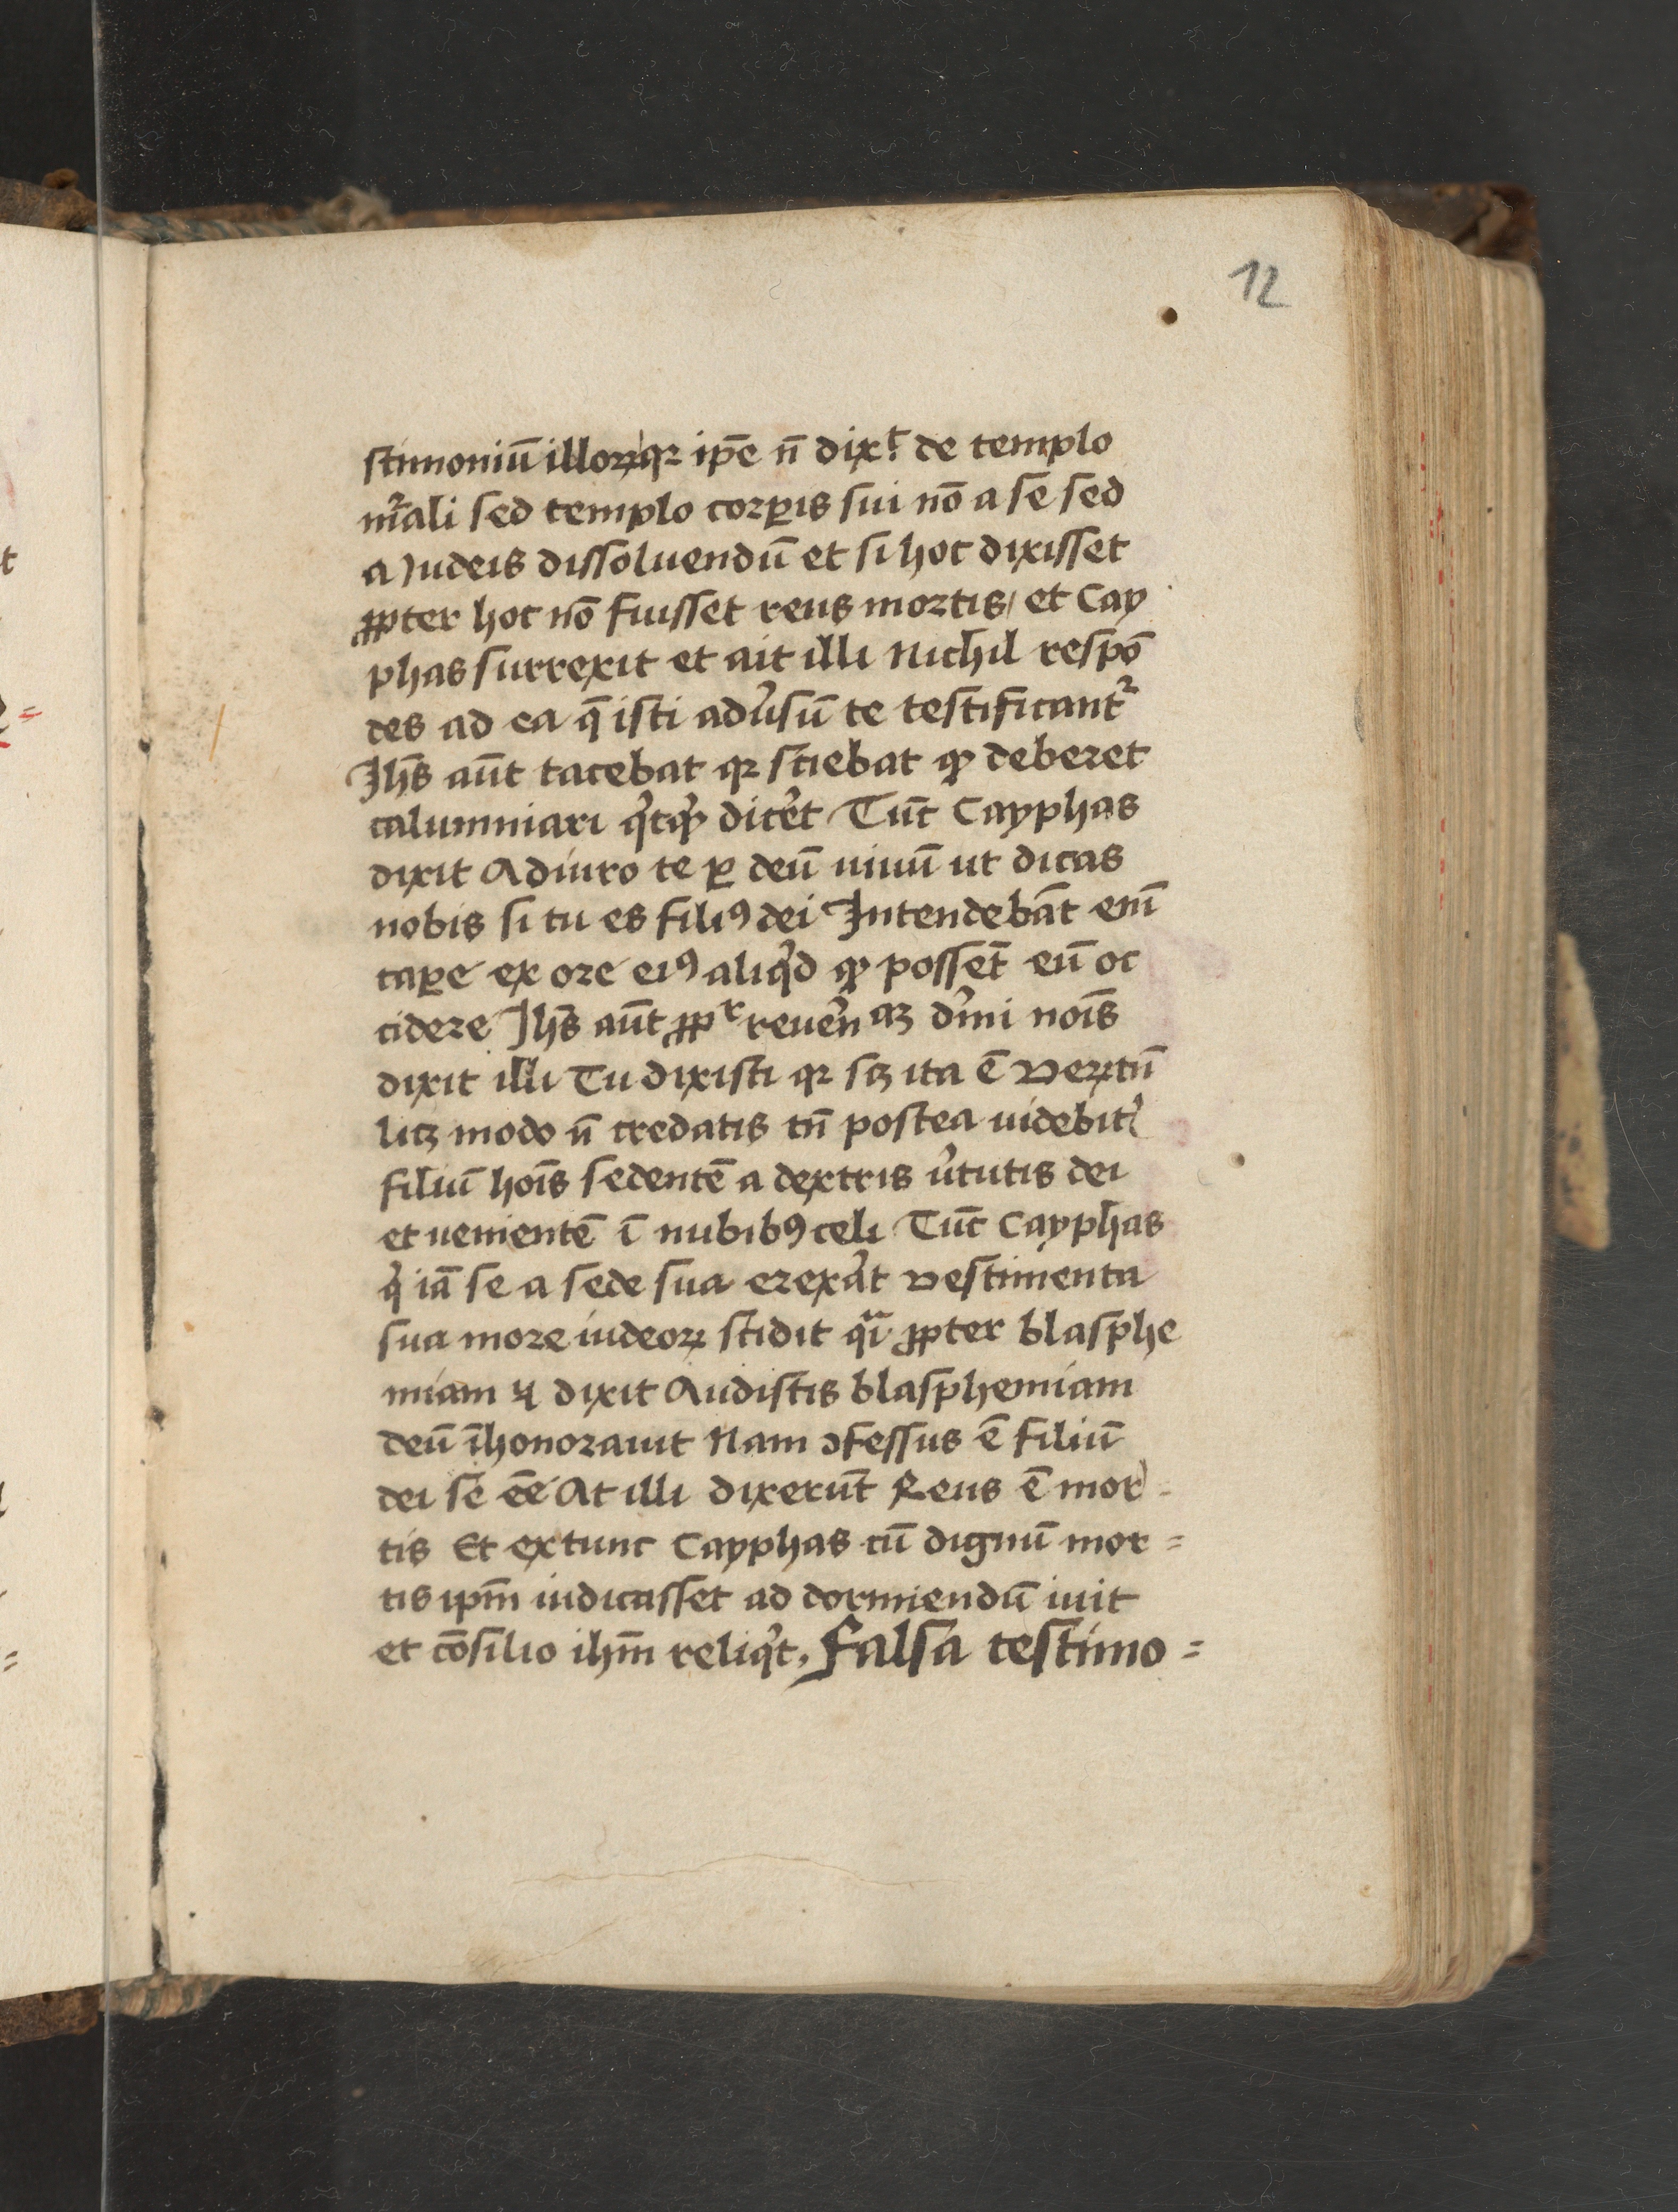 12
stimoniū illoꝝ qꝛ ip̄e n̄ dixͭ de templo
mr̄ali sed templo corꝑis sui nō a se sed
a Iudeis dissoluendū et si hoc dixisset
ꝓpter hoc nō fuisset reus mortis / et Cay
phas surrexit et ait illi Nichil respō
des ad ea q̄ isti adūsū te testificantᷣ
Jhs̄ aūt tacebat qꝛ sciebat ꝙ deberet
calumniari qͥcꝙ dicēt Tūc Cayphas
dixit Adiuro te ꝑ deū uiuū ut dicas
nobis si tu es filiꝰ dei Intendebāt eni̅
caꝑe ex ore eiꝰ aliqͥd ꝙ possēt eū oc
cidere Jhs̄ aūt ꝓpͬ reuēn aꝫ dīni noi̅s
dixit illi Tu dixisti qꝛ sꝫ ita ē Veꝝtn̄
licꝫ modo n̄ credatis tn̄ postea uidebitꝭ
filiū hoi̅s sedentē a dextris ūtutis dei
et uenientē ī nubibꝰ celi Tūc Cayphas
qͥ iā se a sede sua erexāt vestimenta
sua more iudeoꝝ scidit qͣi ꝓpter blasphe
miam ⁊ dixit Audistis blasphemiam
deū īhonorauit Nam ꝯfessus ē filiū
dei se ēē At illi dixerūt Reus ē mor=
tis Et extunc Cayphas cū dignū mor=
tis ipm̄ iudicasset ad dormiendū iuit
et cōsilio ihm̄ reliqͥt, Falsa testimo=